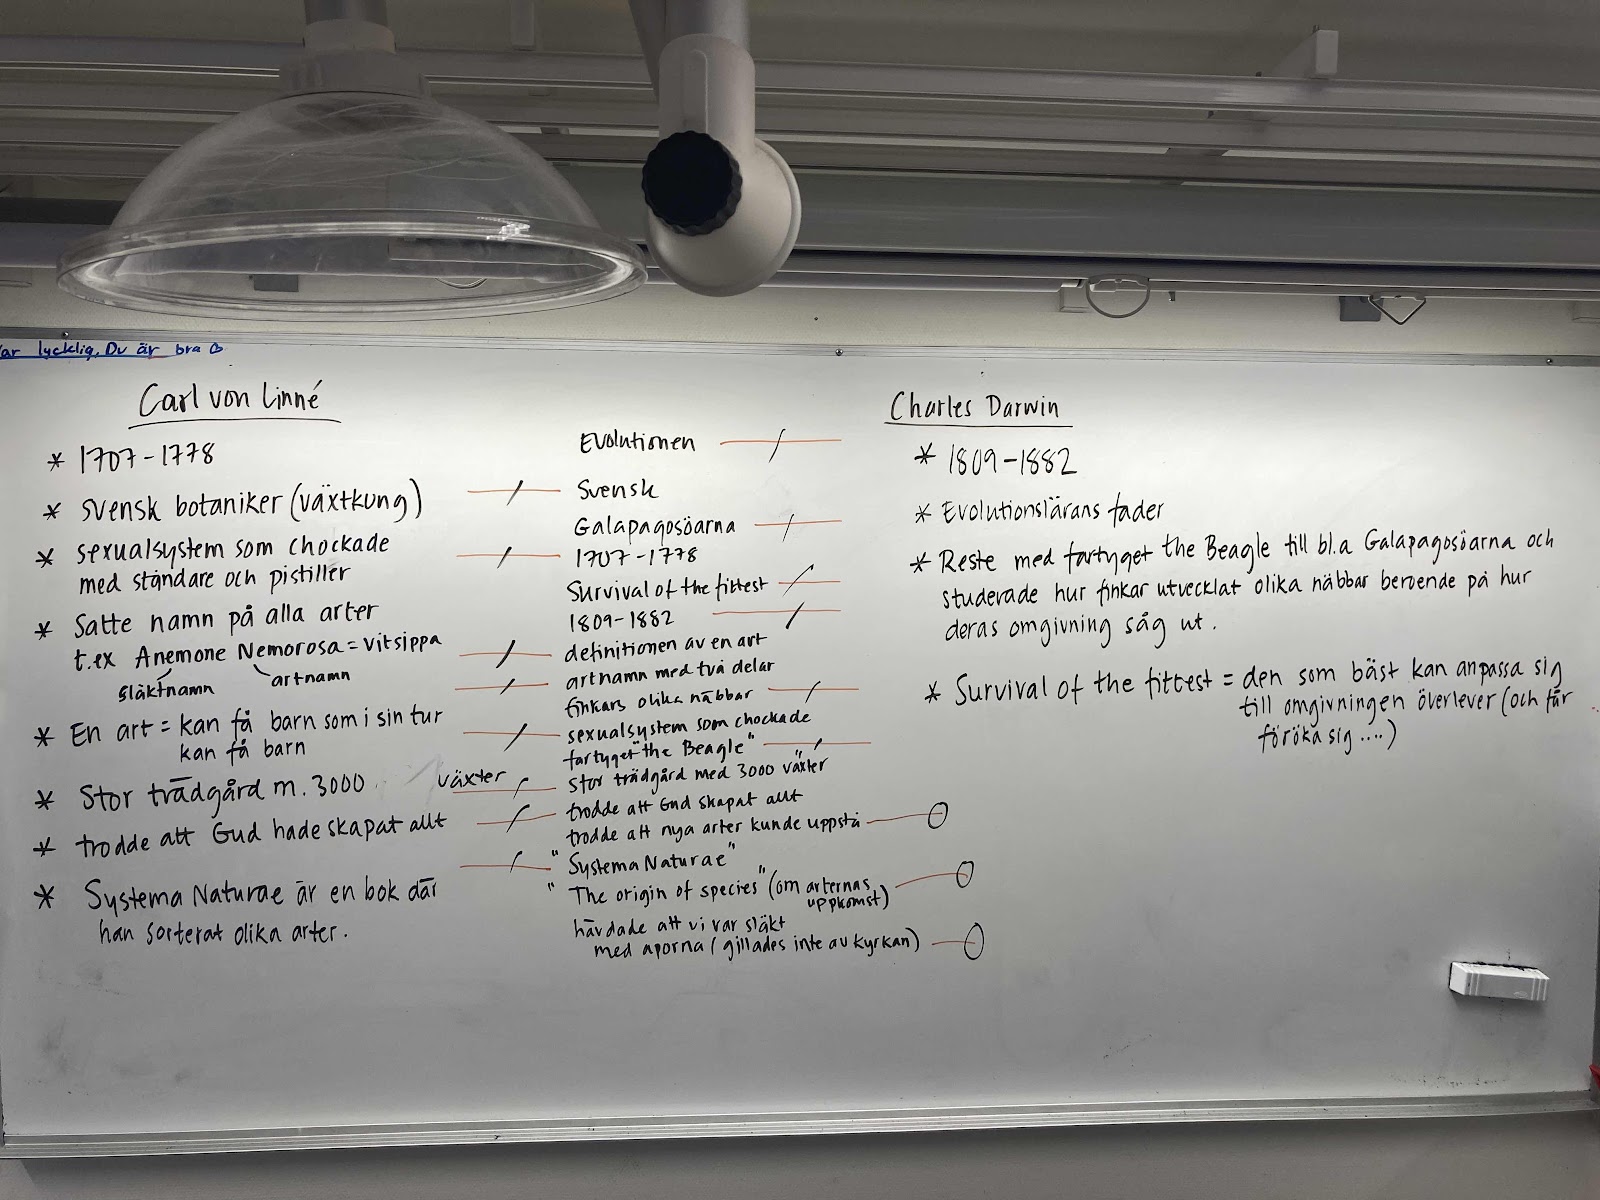 lycklig. Du är bra
Carl von Linné
* 1707-1778
* svensk botaniker (växtkung)
* sexualsystem som chockade
med ståndare och pistiller
* Satte namn på alla arter
t.ex Anemone Nemorosa = vitsippa
släktnamn artnamn
* En art = kan få barn som i sin tur
kan få barn
* Stor trädgård m. 3000 växter
* trodde att Gud hade skapat allt
* Systema Naturae är en bok där
han sorterat olika arter.
Evolutionen
Svensk
Galapagosöarna
1707-1778
Survival of the fittest
1809-1882
definitionen av en art
artnamn med två delar
finkars olika näbbar
sexualsystem som chockade
fartyget "the Beagle"
Stor trädgård med 3000 växter
trodde att Gud skapat allt
trodde att nya arter kunde uppstå
"Systema Naturae"
"The origin of species" (om arternas
uppkomst)
hävdade att vi var släkt
med aporna (gillades inte av kyrkan)
Charles Darwin
* 1809-1882
* Evolutionslärans fader
* Reste med fartyget the Beagle till bl.a Galapagosöarna och
studerade hur finkar utvecklat olika näbbar beroende på hur
deras omgivning såg ut.
* Survival of the fittest = den som bäst kan anpassa sig
till omgivningen överlever (och får
föröka sig ....)